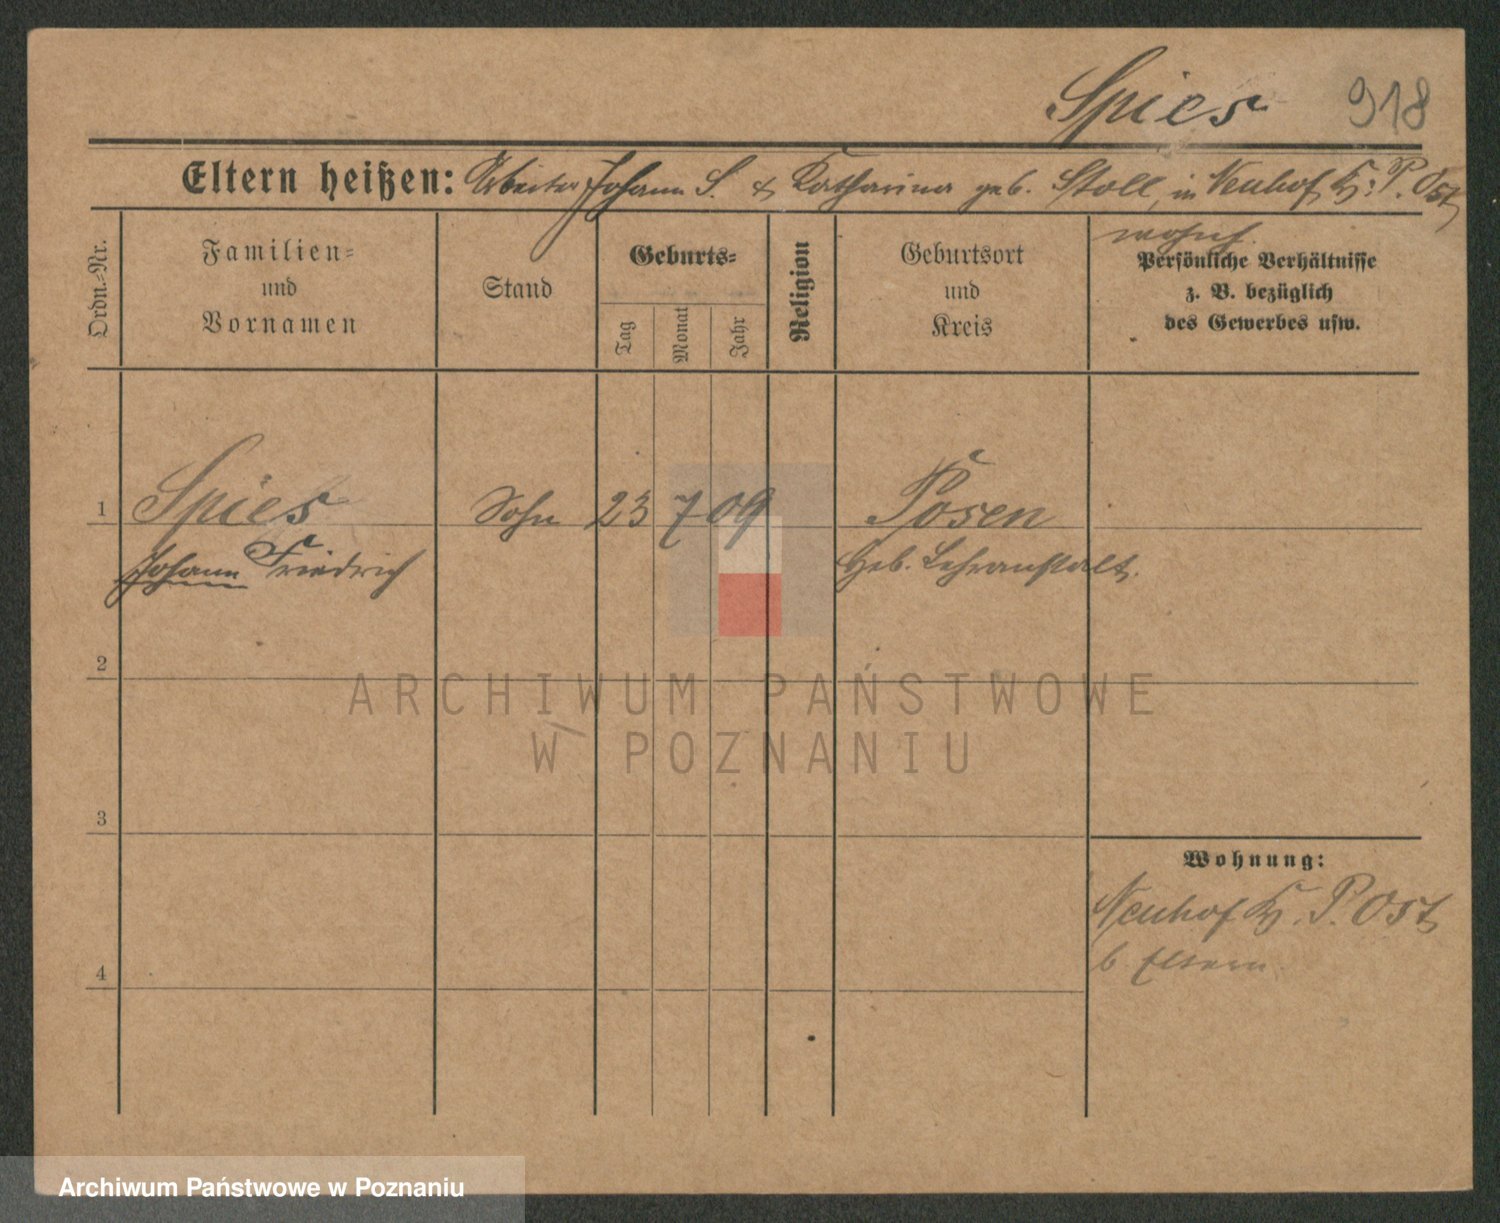 Spies 918
Eltern heißen: Arbeiter Johann S. & Katharina geb. Stoll, in Neuhof Kr. P. Ost
wohnh.
Ordn.-Nr.
Familien-
und
Vornamen
Stand
Geburts-
Tag
Monat
Jahr
Religion
Geburtsort
und
Kreis
Persönliche Verhältnisse
z. B. bezüglich
des Gewerbes usw.
1 Spies Sohn 23 7 09 Posen
Johann Friedrich Heb. Lehranstalt.
2
ARCHIWUM PAŃSTWOWE
W POZNANIU
3
Wohnung:
Neuhof Kr. P. Ost
b. Eltern
4
Archiwum Państwowe w Poznaniu